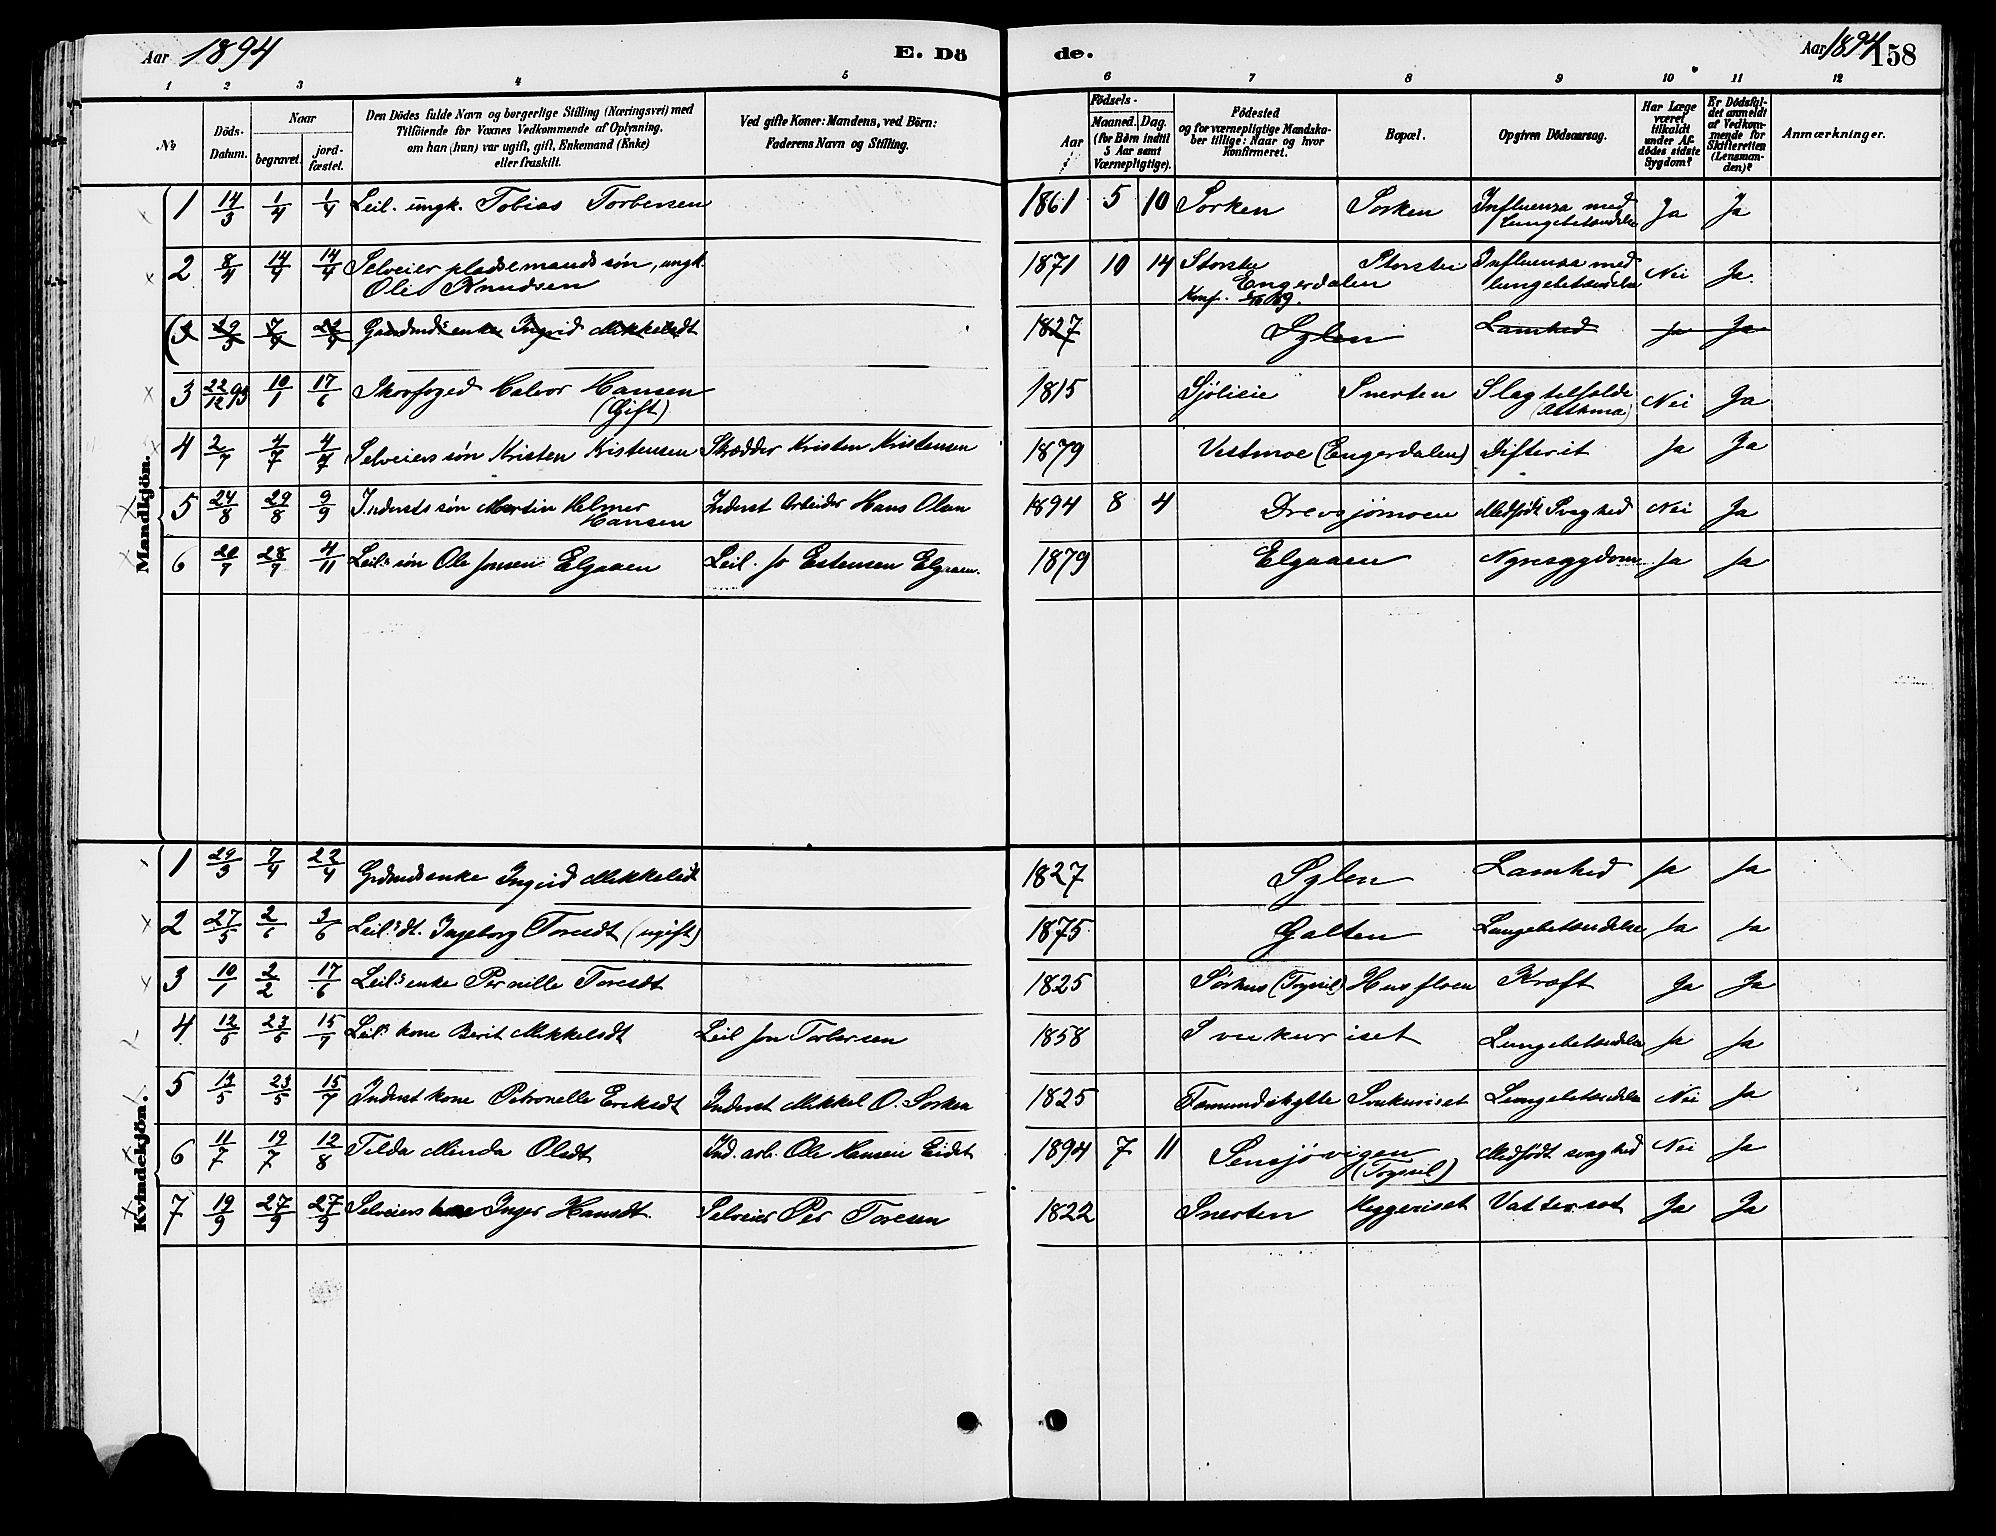 Aar 1894 E. Dö de. Aar 1894 158
1 2 3 4 5 6 7 8 9 10 11 12
№ Döds-Datum. Naar begravet. jordfæstet. Den Dödes fulde Navn og borgerlige Stilling (Næringsvei) med Tilföiende for Voxnes Vedkommende af Oplysning, om han (hun) var ugift, gift, Enkemand (Enke) eller fraskilt. Ved gifte Koner: Mandens, ved Börn: Faderens Navn og Stilling. Födsels- Aar Maaned. Dag. (for Börn indtil 5 Aar samt Værnepligtige). Födested og for værnepligtige Mandskaber tillige: Naar og hvor Konfirmeret. Bopæl. Opgiven Dödsaarsag. Har Læge været tilkaldt under Afdödes sidste Sygdom? Er Dödsfaldet anmeldt af Vedkommende for Skifteretten (Lensmanden)? Anmærkninger.
Mandkjön.
1 14/3 1/4 1/4 Leil. ungk. Tobias Torbersen 1861 5 10 Sorken Sorken Influensa med Lungebetændelse Ja Ja
2 8/4 14/4 14/4 Selveier pladsemands søn, ungk. Ole Knudsen 1871 10 14 Storsten Engerdalen Konf. Storsten Influensa med lungebetændelse Nei Ja
(3 29/3 7/4 22/4 Grdmds enke Ingrid Mikkelsdt 1827 Sylen Lamhed Ja Ja
3 22/12 93 10/1 17/6 Skovfoged Halvor Hansen (Gift) 1815 Sjölisie Snerten Slagtilfælde (Atthma) Nei Ja
4 2/7 4/7 4/7 Selveiers søn Kristen Kristensen Skrædder Kristen Kristensen 1879 Vestmoe (Engerdalen) Difterit Ja Ja
5 24/8 29/8 9/9 Indersts søn Martin Helmer Hansen Inderst Arbeider Hans Olsen 1894 8 4 Drevsjömoen Medfödt Svaghed Nei Ja
6 20/7 28/7 4/11 Leil.s søn Ole Jonsen Elgaaen Leil. Jo Estensen Elgaaen. 1879 Elgaaen Nyresygdom Ja Ja
Kvindekjön.
1 29/3 7/4 22/4 Grdmds enke Ingrid Mikkelsdt 1827 Sylen Lamhed Ja Ja
2 27/5 2/6 3/6 Leil.s dt. Ingeborg Toresdt (ugift) 1875 Galten Lungebetændelse Ja Ja
3 10/1 2/2 17/6 Leil.s enke Pernille Toresdt 1825 Sörhus (Trysil) Husfloen Kræft Ja Ja
4 12/5 23/5 15/7 Leil.s kone Berit Mikkelsdt Leil Jon Torbersen 1858 Svukuriset Lungebetændelse Ja Ja
5 13/5 23/5 15/7 Inderst kone Petronelle Eriksdt Inderst Mikkel O. Sorken 1825 Fæmundshytte Svukuriset Lungebetændelse Nei Ja
6 11/7 19/7 12/8 Tilda Minda Olsdt Ind. arb. Ole Hansen Eidet 1894 7 11 Sensjövigen (Trysil) Medfödt svaghed Nei Ja
7 19/9 27/9 27/9 Selveiers kone Inger Hansdt Selveier Per Toresen 1822 Snerten Heggeriset Vattersot Ja Ja